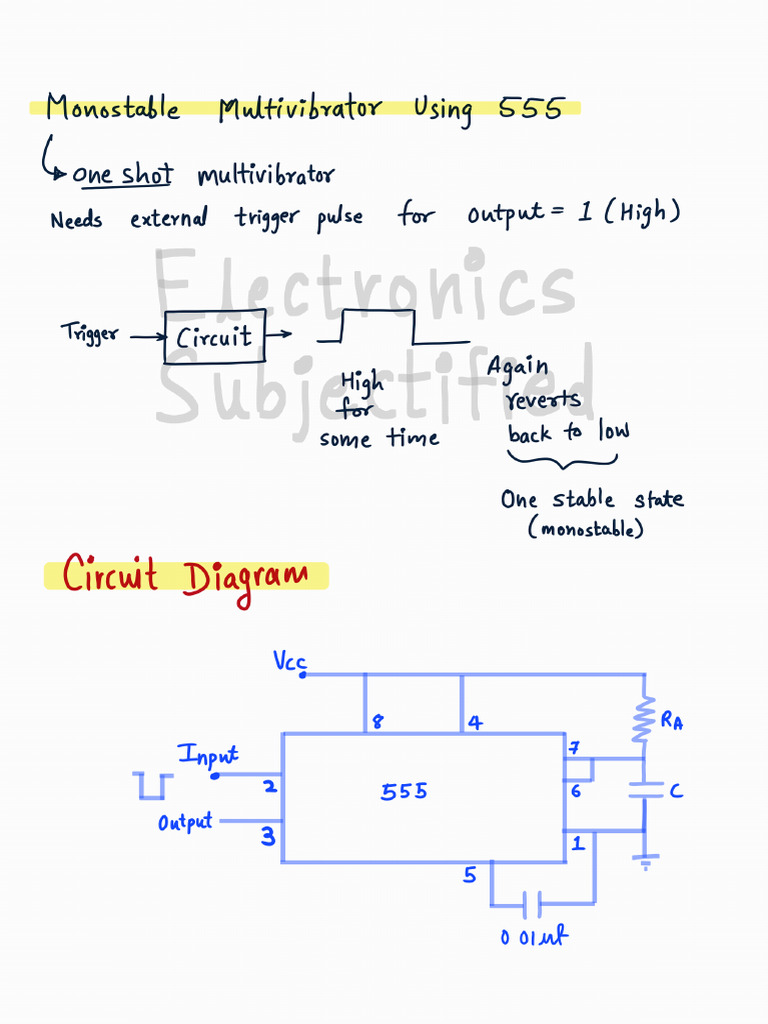 Monostable Multivibrator Using 555
One shot multivibrator
Needs external trigger pulse for output = 1 (High)
Electronics
Subjectified
Trigger
Circuit
High
for
some time
Again
reverts
back to low
One stable state
(monostable)
Circuit Diagram
Vcc
8
4
RA
Input
2
555
7
6
C
Output
3
1
5
0.01uf